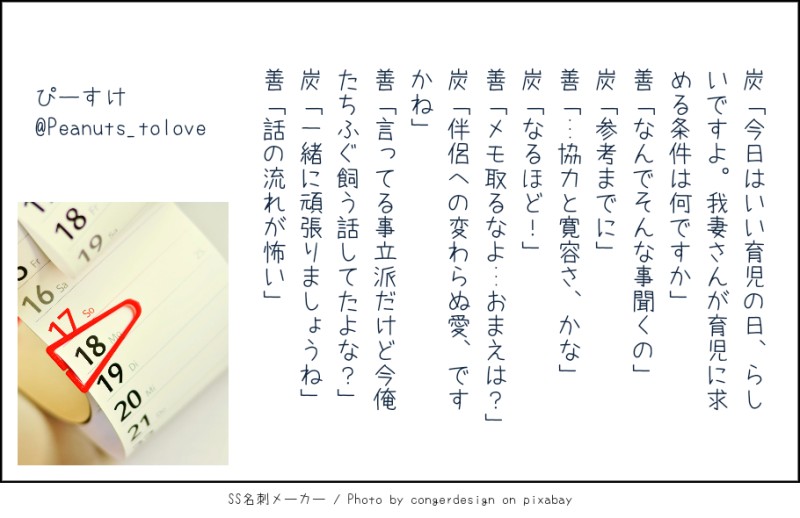 炭「今日はいい育児の日、らし
いですよ。我妻さんが育児に求
める条件は何ですか」
善「なんでそんな事聞くの」
炭「参考までに」
善「…協力と寛容さ、かな」
炭「なるほど！」
善「メモ取るなよ…おまえは？」
炭「伴侶への変わらぬ愛、です
かね」
善「言ってる事立派だけど今俺
たちふぐ飼う話してたよな？」
炭「一緒に頑張りましょうね」
善「話の流れが怖い」
ぴーすけ
@Peanuts_tolove
17
18
19
Fr
16 Sa
17 So
18 Mo
19 Di
20 Mi
21
SS名刺メーカー / Photo by congerdesign on pixabay